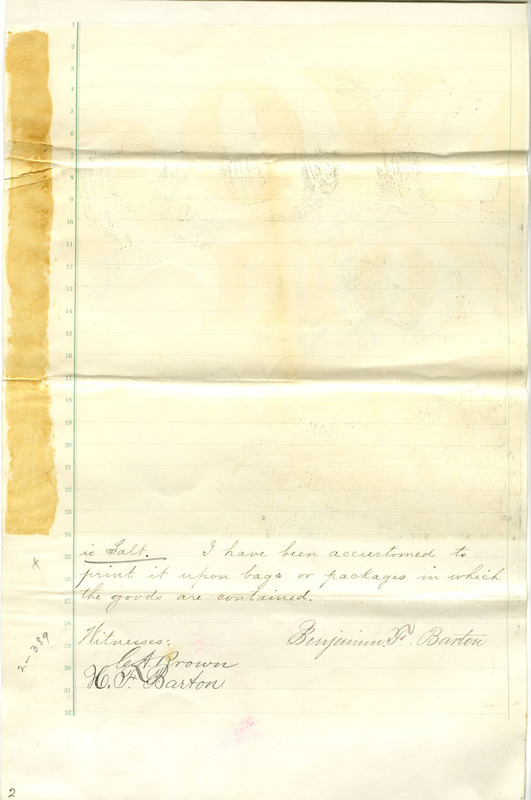 1
2
3
4
5
6
7
8
9
10
11
12
13
14
15
16
17
18
19
20
21
22
23
24
25
is Salt. I have been accustomed to
26
print it upon bags or packages in which
the goods are contained.
27
28
Witnesses: Benjamin F. Barton
29
C. A. Brown
30
H. F. Barton
31
32
x
2-389
2